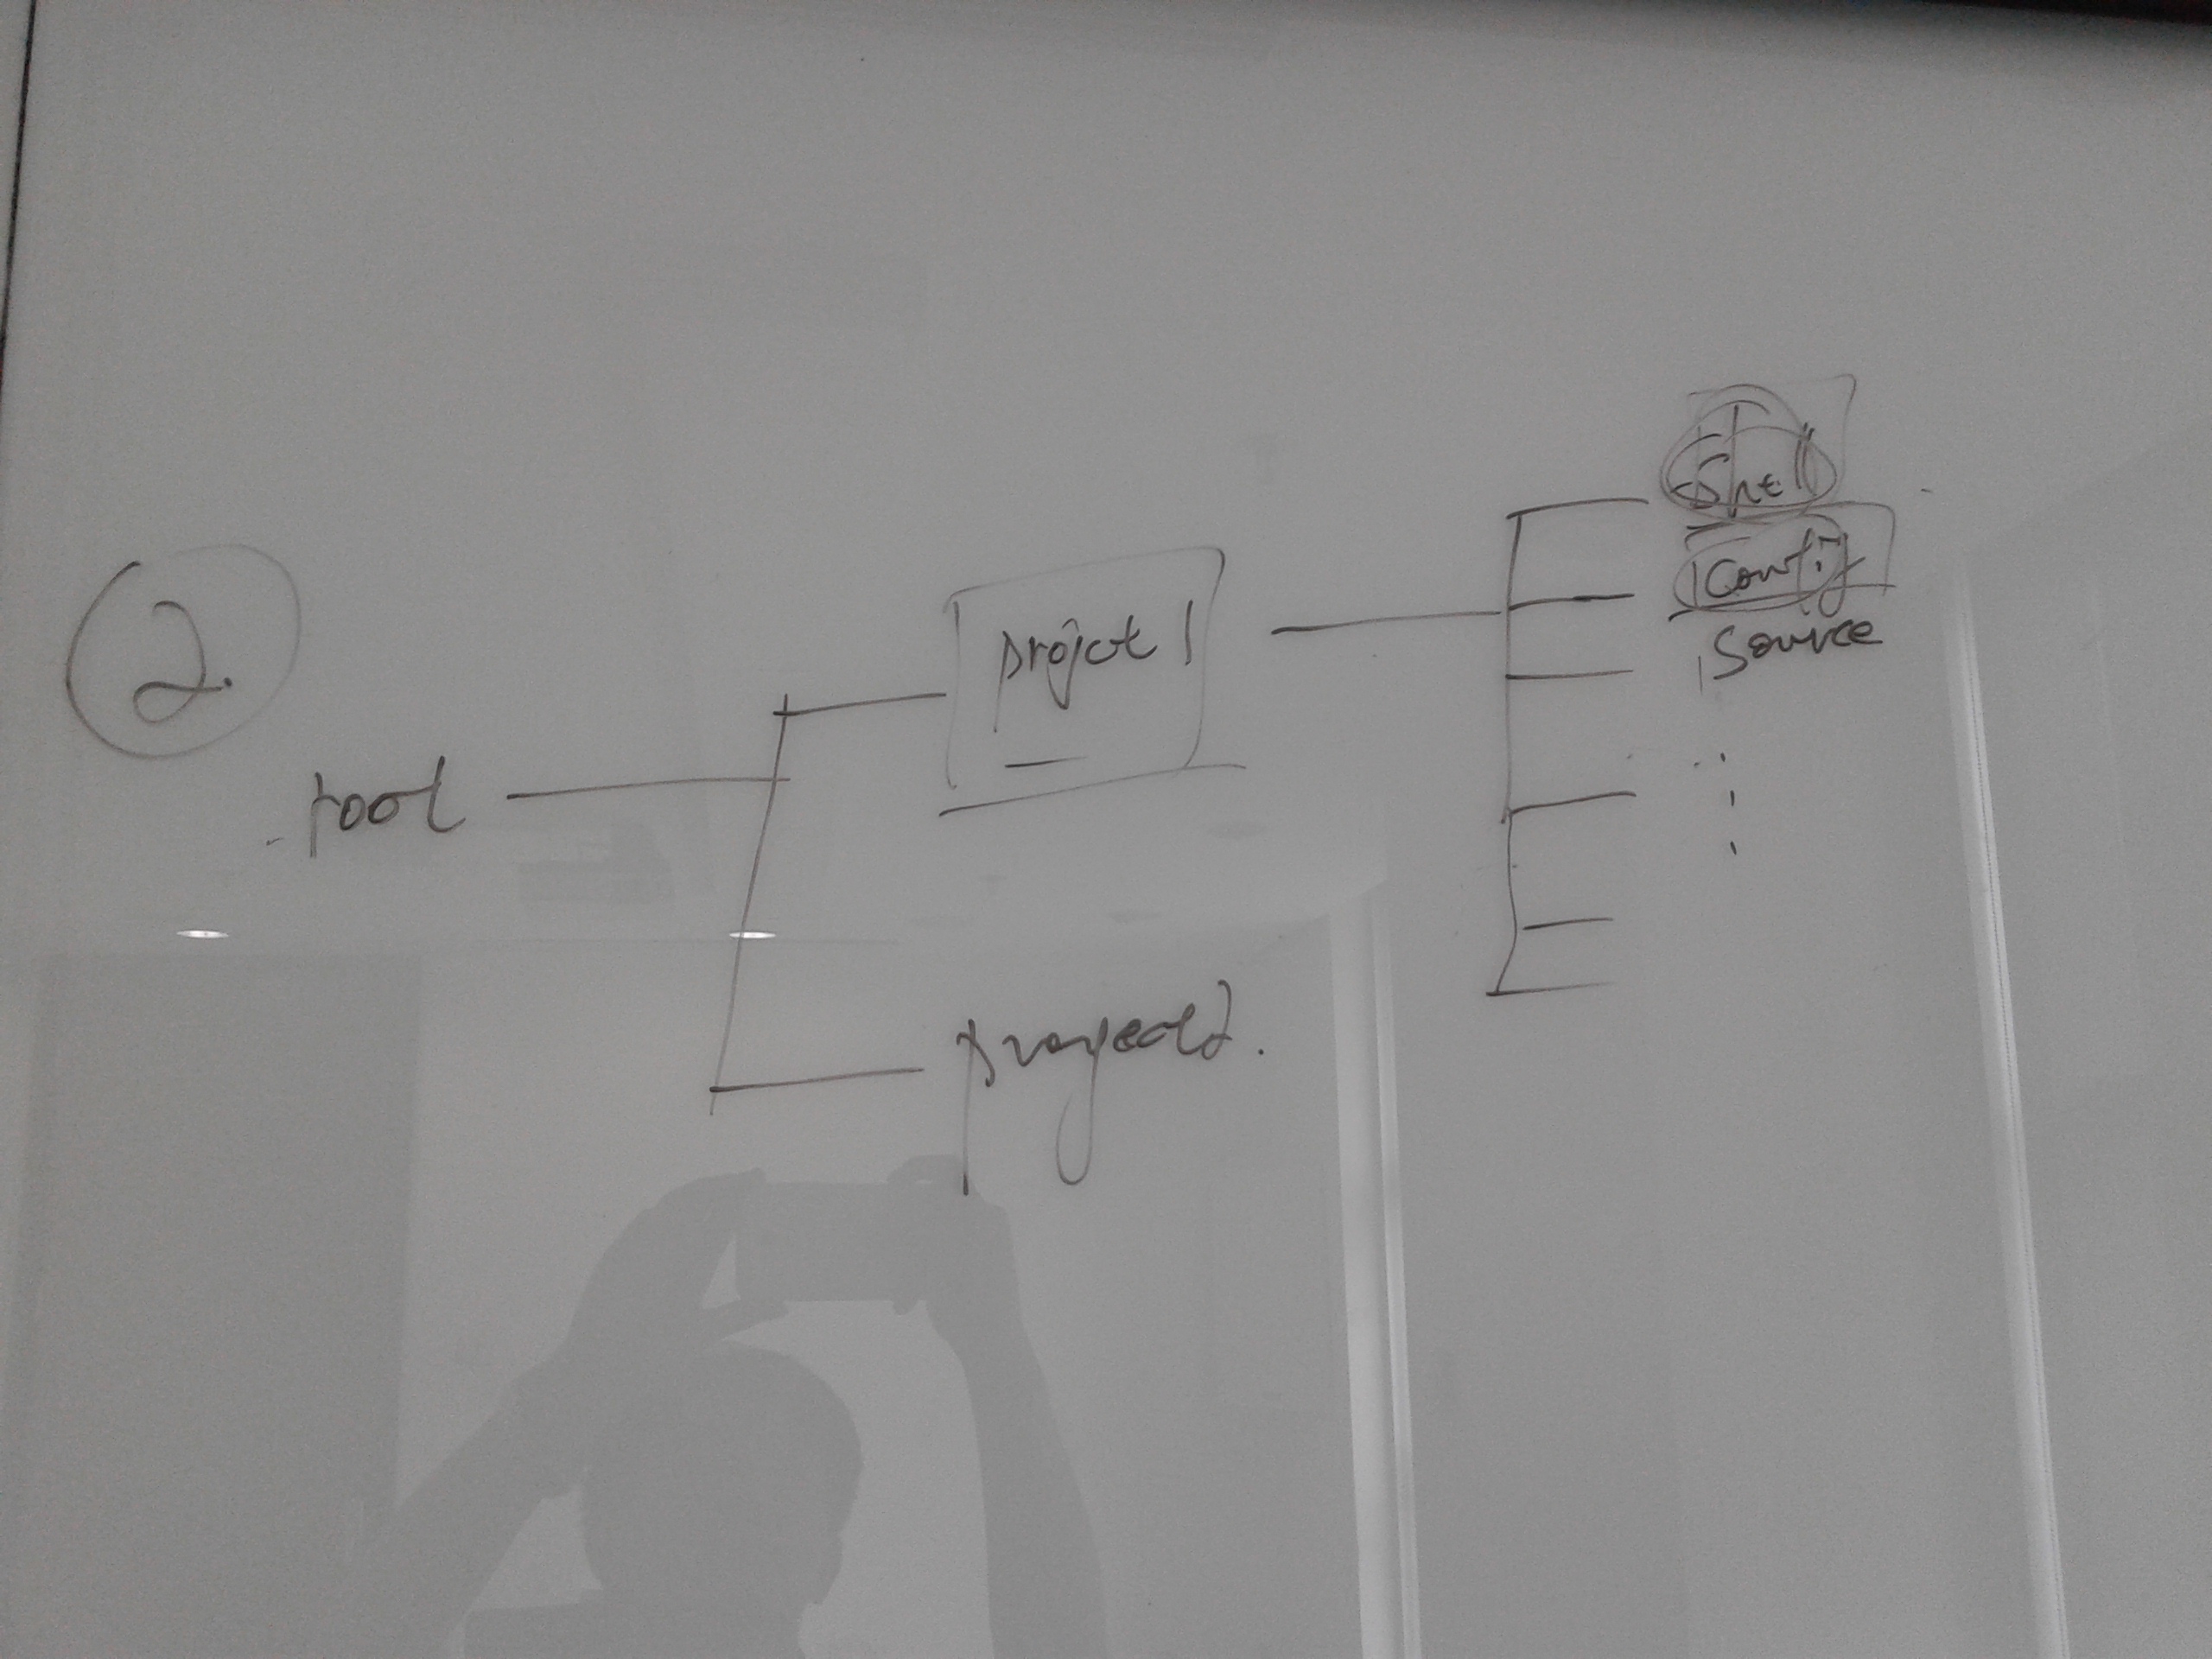 2.
root
project 1
project2.
Shell
Config
Source